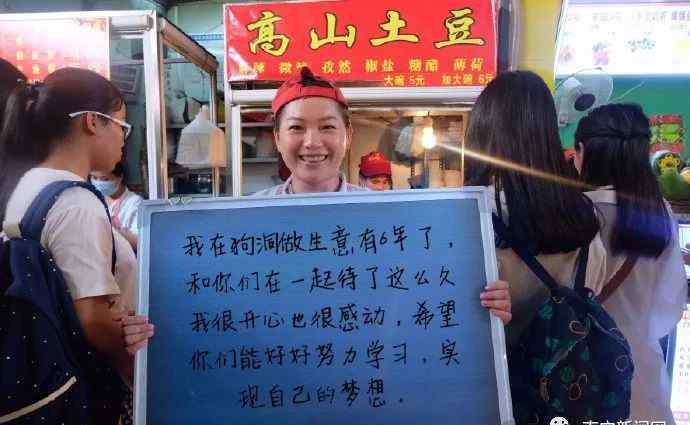 高山土豆
麻辣 微辣 孜然 椒盐 糖醋 薄荷
大碗 5元 加大碗 6元
我在狗洞做生意有6年了，
和你们在一起待了这么久
我很开心也很感动，希望
你们能好好努力学习，实
现自己的梦想。